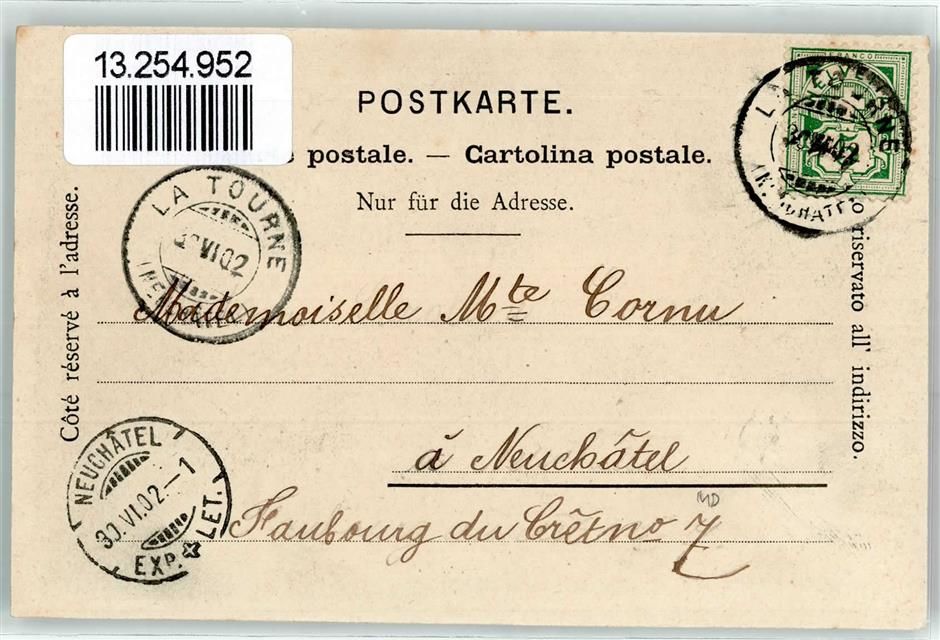 13.254.952
POSTKARTE.
postale. — Cartolina postale.
Nur für die Adresse.
Côté réservé à l'adresse.
riservato all' indirizzo.
FRANCO
LA TOURNE
VI 02
LA TOURNE
VI 02
Mademoiselle Mte Cornu
à Neuchâtel
Faubourg du Crêt no 7
MD
NEUCHÂTEL
30.VI.02.–1
EXP. LET.